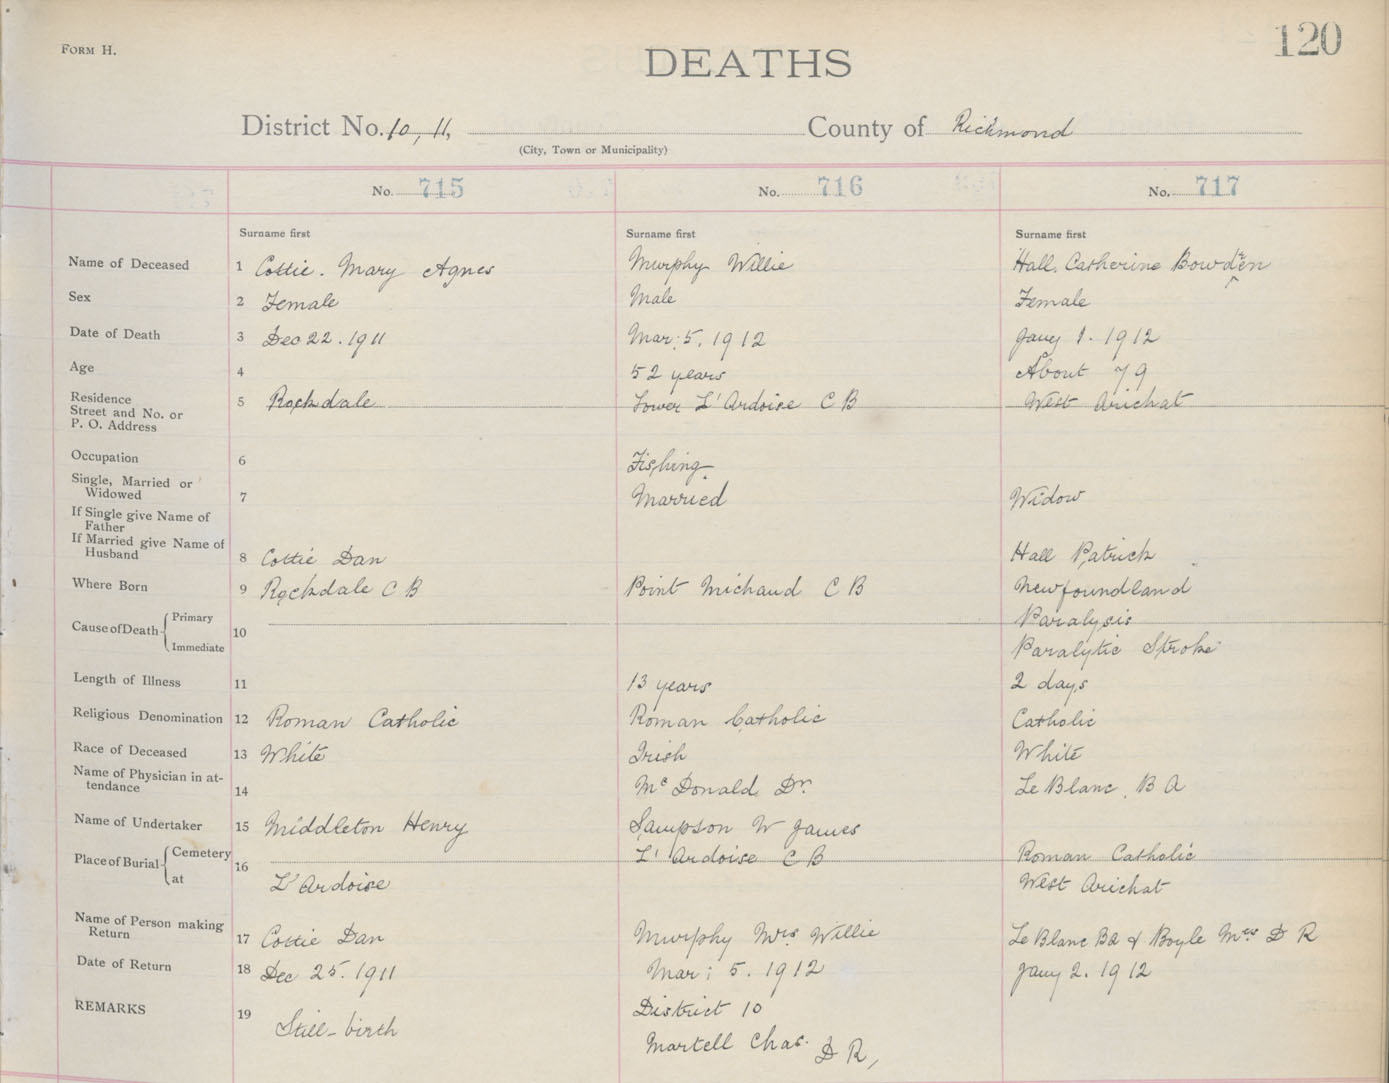 FORM H.
120
DEATHS
District No. 10, 11, County of Richmond
(City, Town or Municipality)
No. 715 No. 716 No. 717
Surname first Surname first Surname first
Name of Deceased 1 Cottie. Mary Agnes Murphy Willie Hall. Catherine Bowden
Sex 2 Female Male Female
Date of Death 3 Dec 22. 1911 Mar: 5. 1912 Jany 1. 1912
Age 4 52 years About 79
Residence
Street and No. or
P. O. Address 5 Rockdale Lower L'Ardoise C B West Arichat
Occupation 6 Fishing
Single, Married or
Widowed 7 Married Widow
If Single give Name of
Father
If Married give Name of
Husband 8 Cottie Dan Hall Patrick
Where Born 9 Rockdale C B Point Michaud C B Newfoundland
Cause of Death Primary Paralysis
10
Immediate Paralytic Stroke
Length of Illness 11 13 years 2 days
Religious Denomination 12 Roman Catholic Roman Catholic Catholic
Race of Deceased 13 White Irish White
Name of Physician in at-
tendance 14 Mc Donald Dr. Le Blanc. B A
Name of Undertaker 15 Middleton Henry Sampson W James
Place of Burial Cemetery 16 L'Ardoise C B Roman Catholic
at L'Ardoise West Arichat
Name of Person making
Return 17 Cottie Dan Murphy Mrs. Willie Le Blanc BA & Boyle Mrs D R
Date of Return 18 Dec 25. 1911 Mar: 5. 1912 Jany 2. 1912
REMARKS 19 Still-birth District 10
Martell Chas. D R,